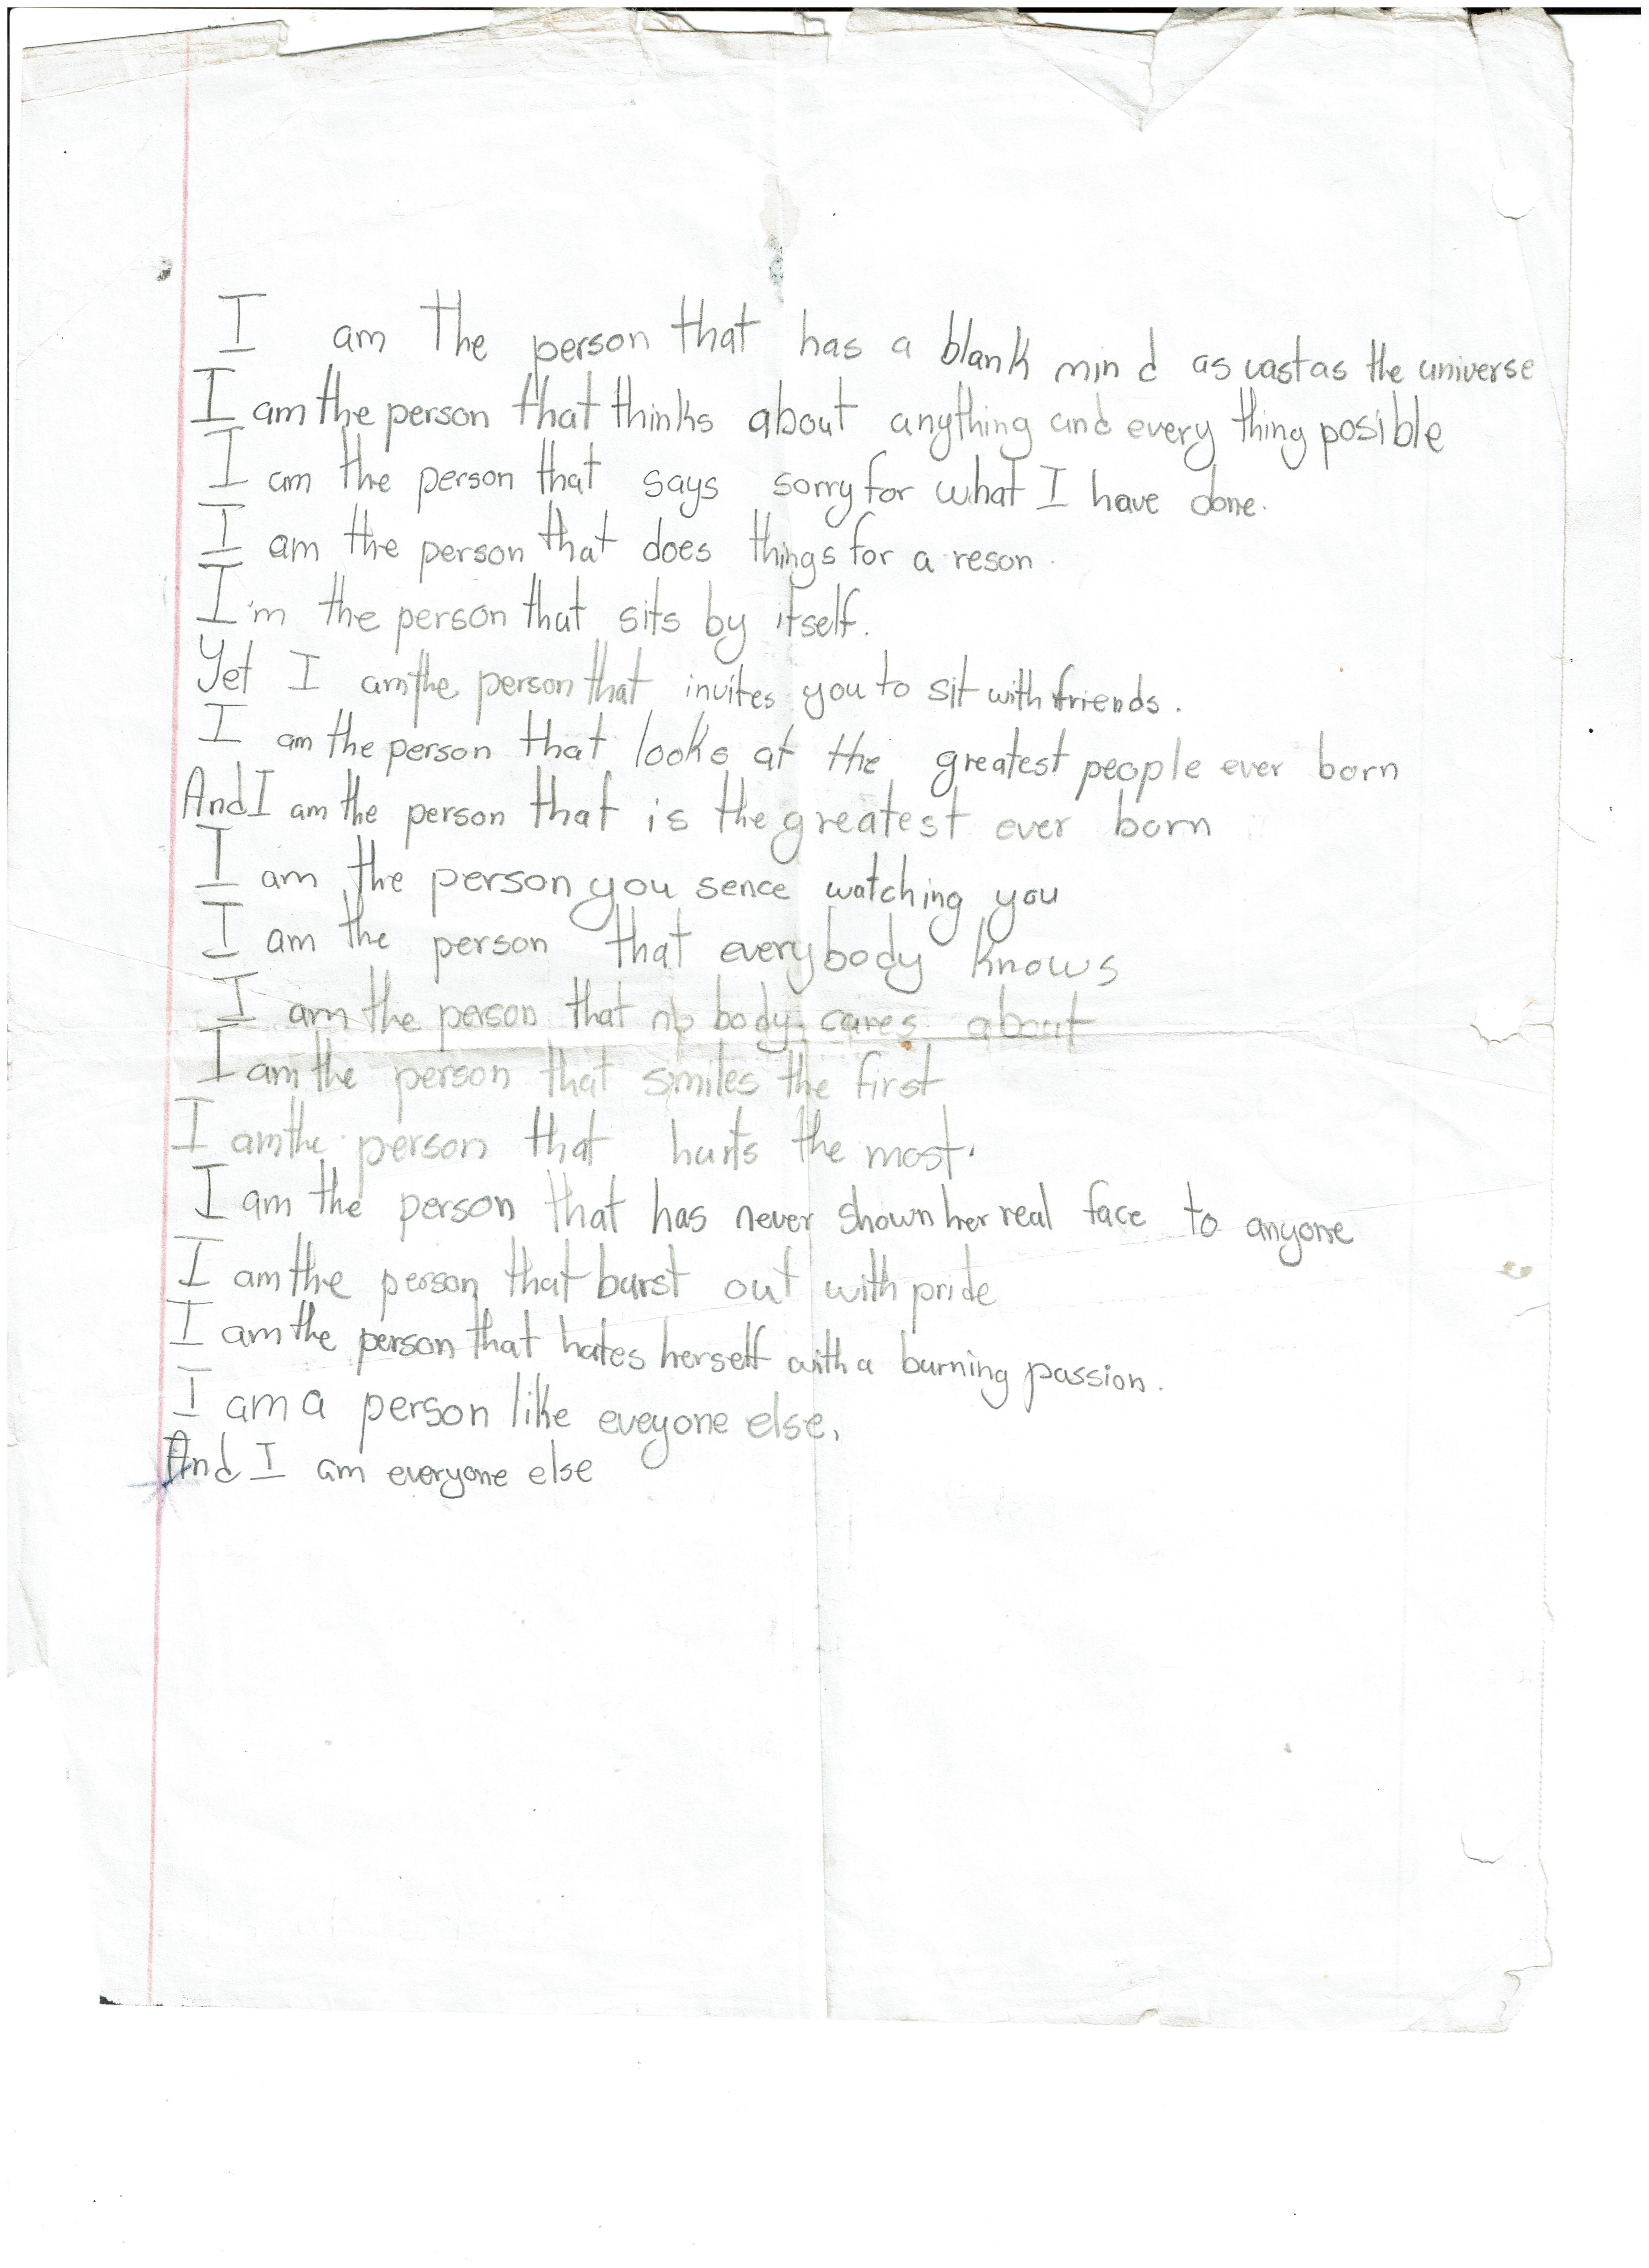 I am the person that has a blank mind as vast as the universe
I am the person that thinks about anything and every thing posible
I am the person that says sorry for what I have done.
I am the person that does things for a reson.
I'm the person that sits by itself.
Yet I am the person that invites you to sit with friends.
I am the person that looks at the greatest people ever born
And I am the person that is the greatest ever born
I am the person you sence watching you
I am the person that everybody knows
I am the person that no body cares about
I am the person that smiles the first
I am the person that hurts the most.
I am the person that has never shown her real face to anyone
I am the person that burst out with pride
I am the person that hates herself with a burning passion.
I am a person like eveyone else.
And I am everyone else